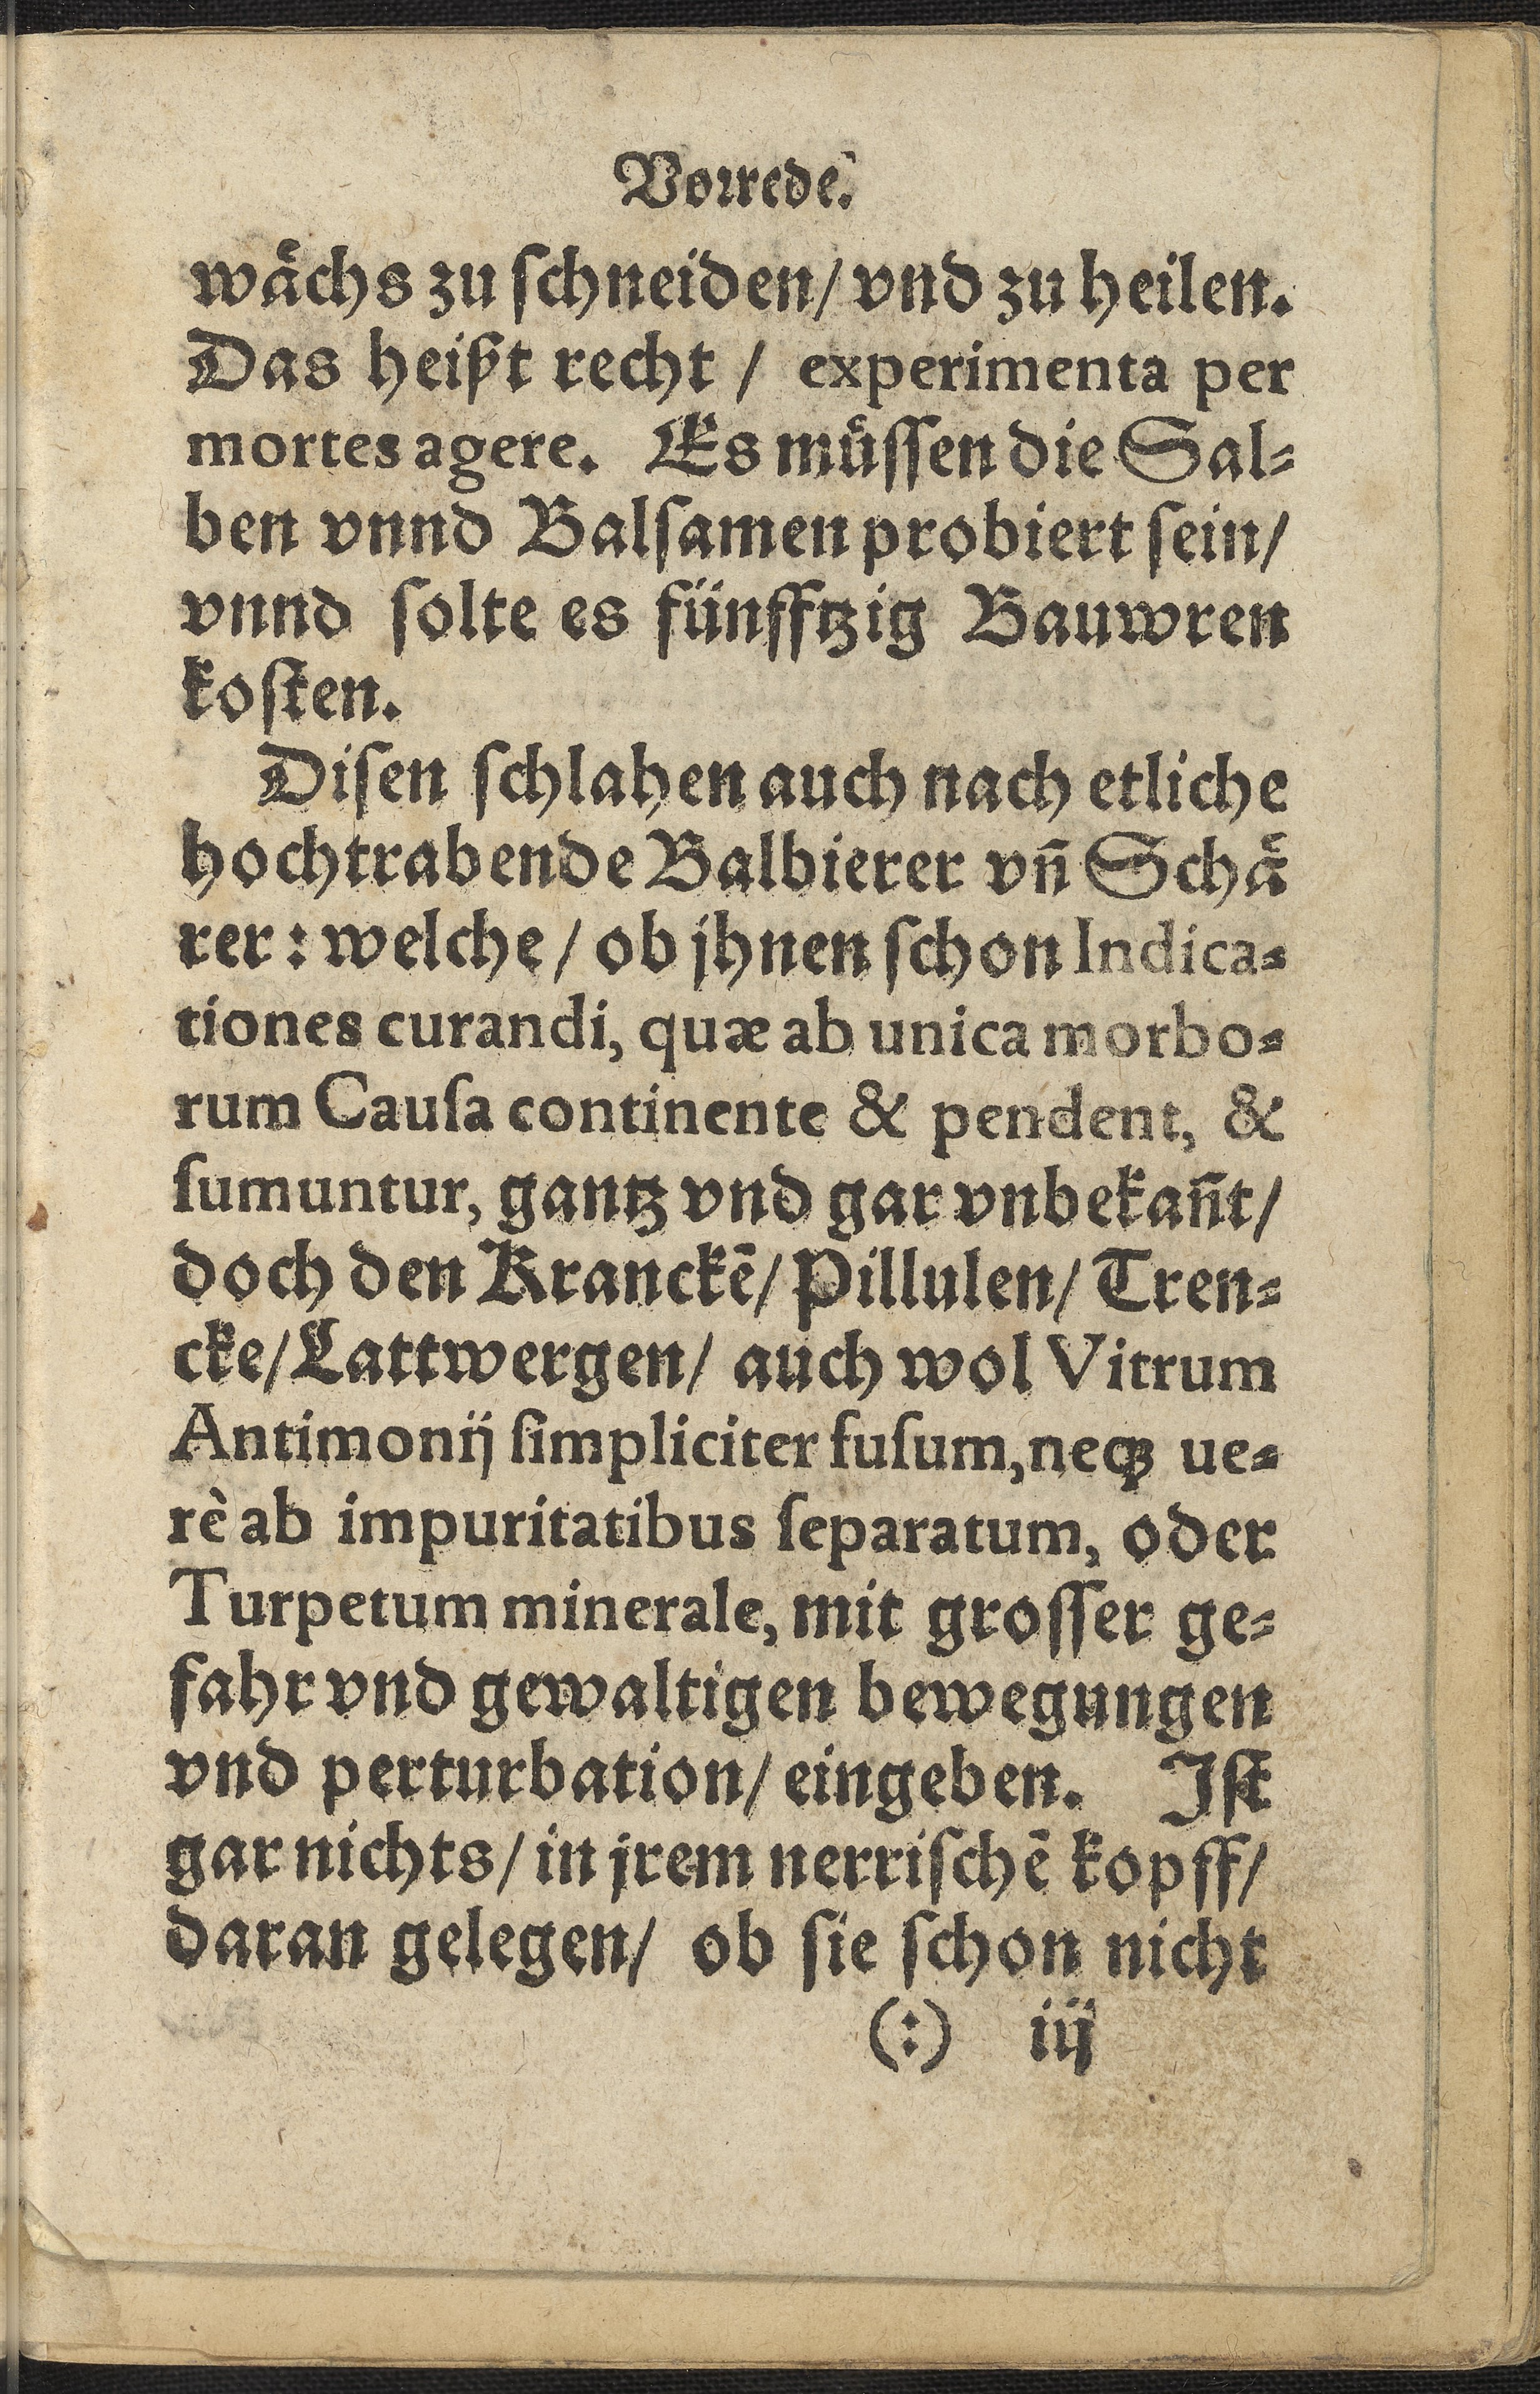 Vorrede.
wåchs zu ſchneiden/ vnd zu heilen.
Das heißt recht / experimenta per
mortes agere. Es můſſen die Sal⸗
ben vnnd Balſamen probiert ſein/
vnnd ſolte es fünfftzig Bauwren
koſten.
Diſen ſchlahen auch nach etliche
hochtrabende Balbierer vñ Schaͤ
rer: welche/ ob jhnen ſchon Indica⸗
tiones curandi, quæ ab unica morbo⸗
rum Cauſa continente & pendent, &
ſumuntur, gantz vnd gar vnbekañt/
doch den Kranckē/ Pillulen/ Tren⸗
cke/ Lattwergen/ auch wol Vitrum
Antimonij ſimpliciter fuſum, neqꝫ ue⸗
rè ab impuritatibus ſeparatum, oder
Turpetum minerale, mit groſſer ge⸗
fahr vnd gewaltigen bewegungen
vnd perturbation/ eingeben. Iſt
gar nichts/ in jrem nerriſchē kopff/
daran gelegen/ ob ſie ſchon nicht
(:) iij